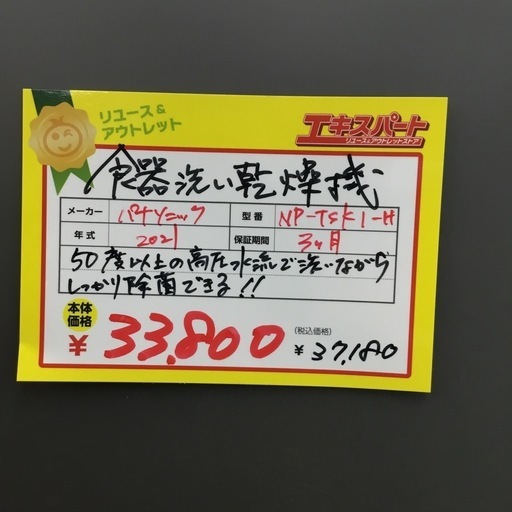 リユース&
アウトレット
エキスパート
リユース&アウトレットストア
食器洗い乾燥機
メーカー パナソニック 型番 NP-TSK1-H
年式 2021 保証期間 3ヶ月
50度以上の高圧水流で洗いながら
しっかり除菌できる!!
本体価格 ¥33.800 (税込価格) ¥37,180